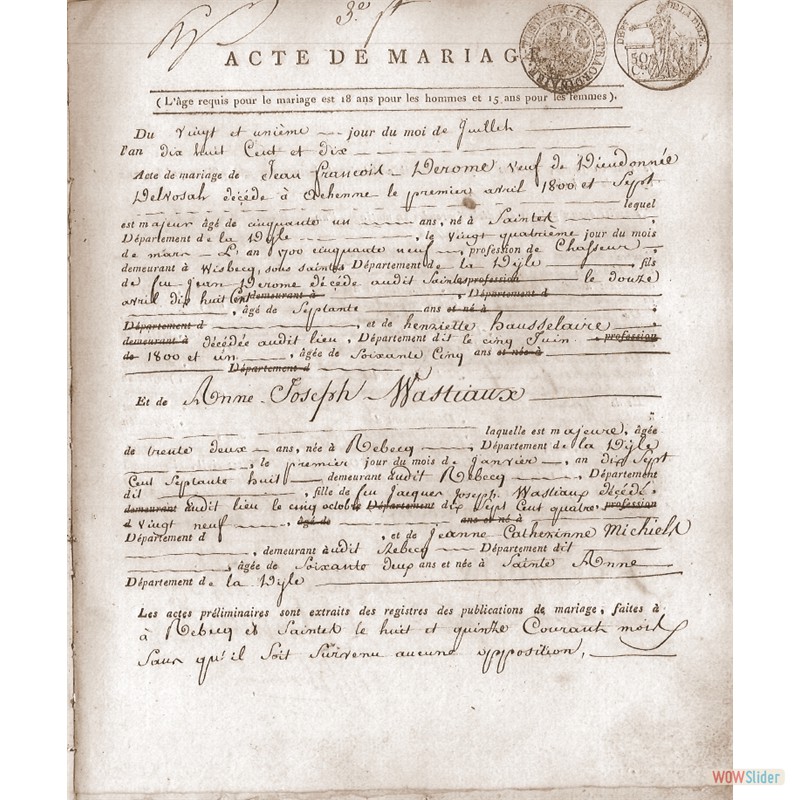 3.e
ACTE DE MARIAGE
DEPT DE LA DYLE.
50
C.
(L'âge requis pour le mariage est 18 ans pour les hommes et 15 ans pour les femmes).
Du vingt et unième jour du moi de Juillet
l'an dix huit Cent et dix
Acte de mariage de Jean francois Derome veuf de Dieudonnée
Delvosal décède à le premier avril 1800 et Sept
lequel
est majeur âgé de cinquante un ans, né à Saintes
Département de la Dyle, le Vingt quatrième jour du mois
de mars L'an 1700 cinquante neuf, profession de Chasseur
demeurant à Wisbecq, sous saintes Département de la Dijle fils
de feu Jean Derome décède audit Saintes profession le douze
avril dix huit Cent demeurant à, Département d
, âgé de Septante ans et né à
Département d, et de henriette hausselaire
demeurant à décédée audit lieu, Département dit le cinq Juin, profession
de 1800 et un, âgée de Soixante Cinq ans et née à
Département d
Et de Anne Joseph Wastiaux
laquelle est majeure, âgée
de trente deux ans, née à Rebecq, Département de la Dijle
, le premier jour du mois de janvier, an dix Sept
Cent Septante huit demeurant audit Rebecq, Département
dit, fille de feu Jacques Joseph Wastiaux décédé,
demeurant audit lieu le cinq octobre Département dix Sept Cent quatre, profession
d Vingt neuf, âgé de ans et né à
Département d, et de Jeanne Catherinne Michiels
, demeurant audit Rebecq Département dit
, âgée de Soixante deux ans et née à Sainte Anne
Département de la Dijle
Les actes préliminaires sont extraits des registres des publications de mariage, faites à
à Rebecq et Saintes le huit et quinze Courant mois
Sans qu'il Soit Survenu aucune opposition,
WOWSlider